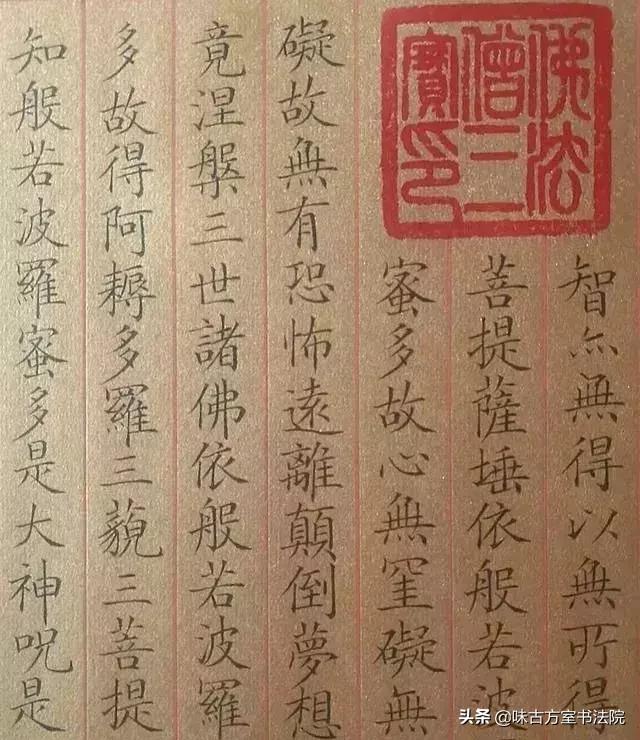 佛法
僧三
寶印
智亦無得以無所得
菩提薩埵依般若波
蜜多故心無罣礙無
礙故無有恐怖遠離顛倒夢想
竟涅槃三世諸佛依般若波羅
多故得阿耨多羅三藐三菩提
知般若波羅蜜多是大神呪是
头条 @味古方室书法院